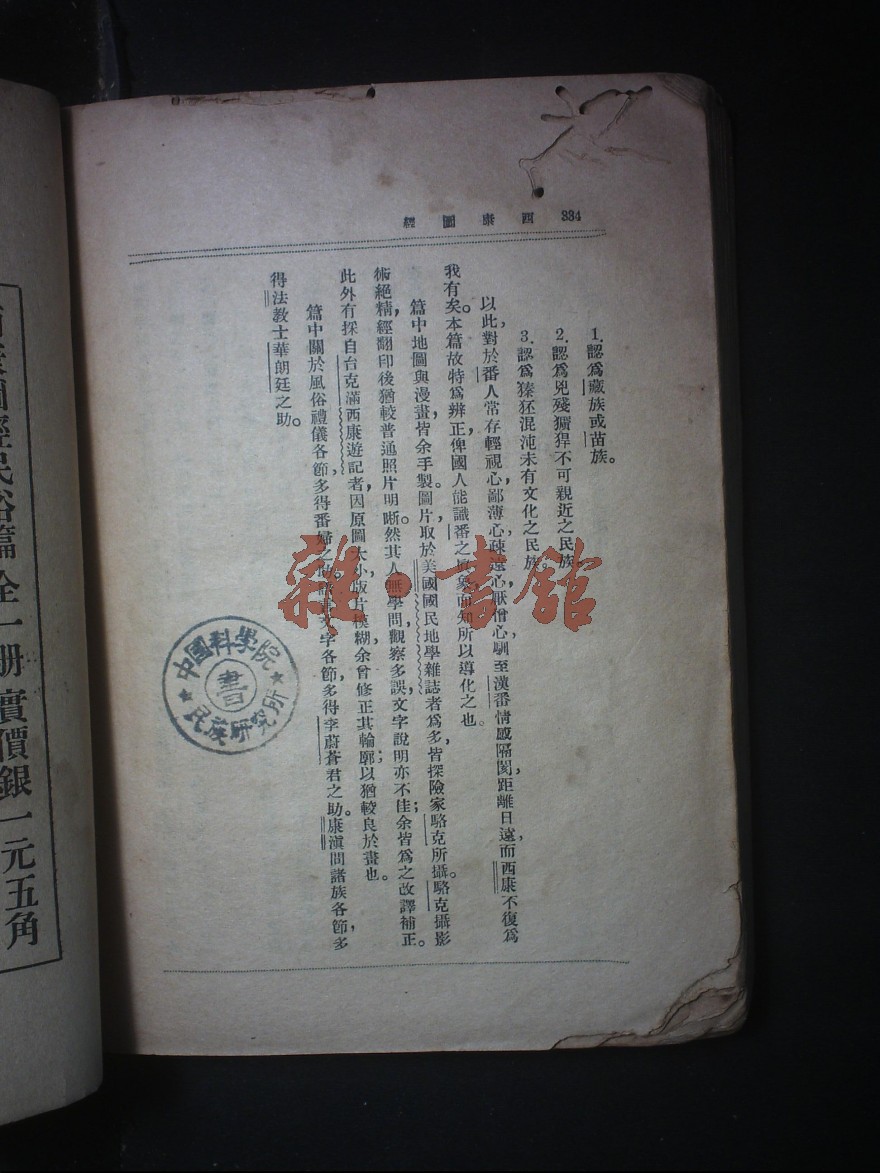 334 西康圖經
1.認爲藏族或苗族。
2.認爲兇殘獷猂不可親近之民族。
3.認爲獉狉混沌未有文化之民族。
以此，對於番人常存輕視心鄙薄心疎遠心厭憎心馴至漢番情感隔閡，距離日遠，而西康不復爲
我有矣。本篇故特爲辨正，俾國人能識番之 而知所以導化之也。
篇中地圖與漫畫皆余手製。圖片取於美國國民地學雜誌者爲多，皆探險家駱克所攝。駱克攝影
術絕精，經翻印後猶較普通照片明晰。然其人無學問，觀察多誤，文字說明亦不佳；余皆爲之改譯補正。
此外有採自台克滿西康遊記者，因原圖太小，版片模糊，余曾修正其輪廓；以猶較良於畫也。
篇中關於風俗禮儀各節，多得番婦之助。 文字各節，多得李蔚蒼君之助。康滇間諸族各節，多
得法教士華朗廷之助。
中國科學院
書
民族研究所
雜·書館
經民俗篇 全一册 實價銀一元五角